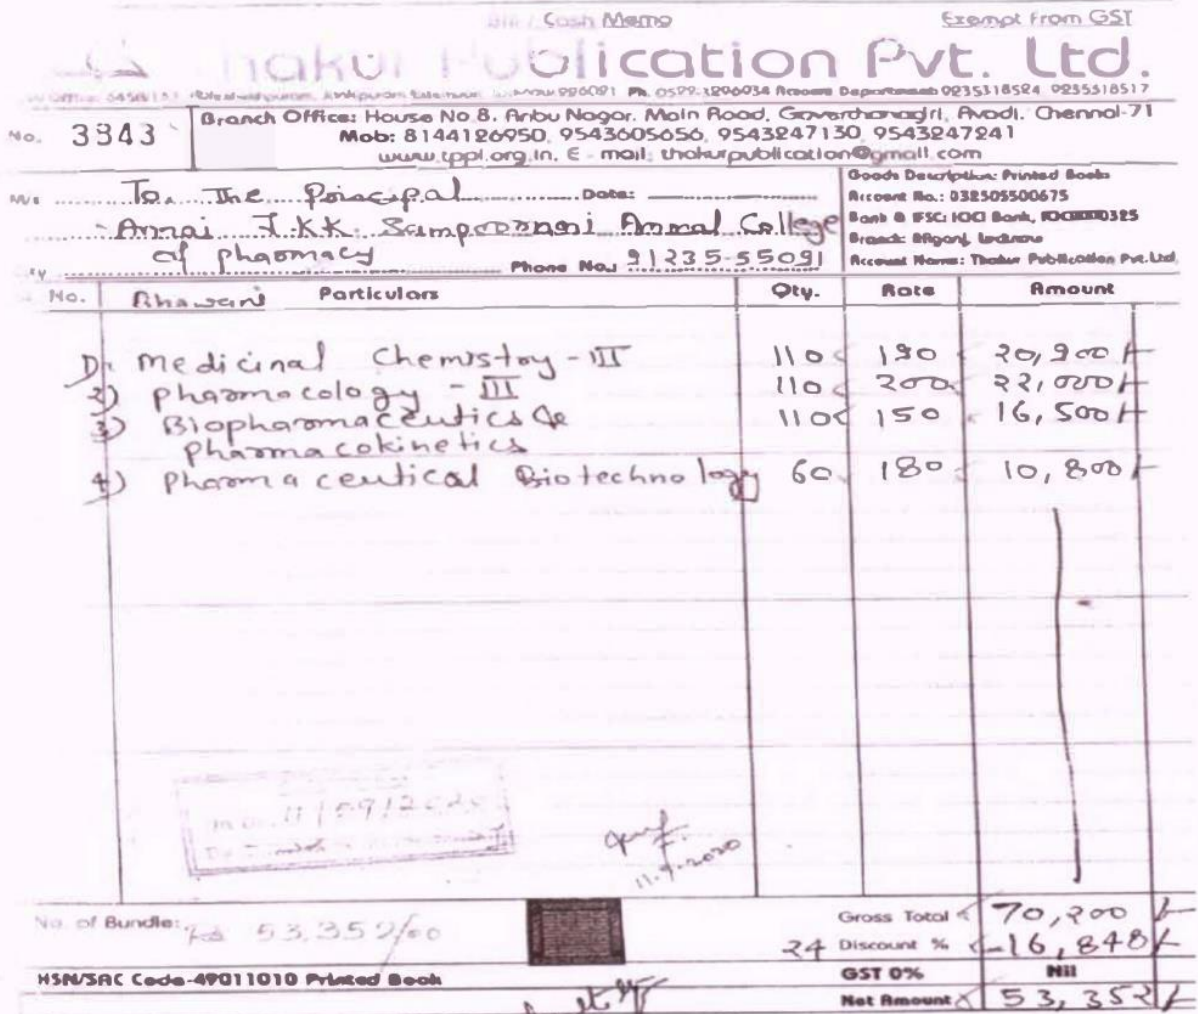 Bill / Cash Memo Exempt From GST
Thakur Publication Pvt. Ltd.
Ph. 0522-3296034 Account Department: 9235318524, 9235318517
No. 3343
Branch Office: House No.8, Anbu Nagar, Main Road, Goverdhanagiri, Avadi, Chennai-71
Mob: 8144126950, 9543605656, 9543247130, 9543247241
www.tppl.org.in, E - mail: thakurpublication@gmail.com
M/s To. The Principal Date:
Annai J.K.K. Sampoorani Ammal College
of pharmacy Phone No. 91235-55091
Bhawani
Goods Description: Printed Books
Account No.: 032505500675
Bank & IFSC: ICICI Bank,
Branch: Aliganj, Lucknow
Account Name: Thakur Publication Pvt.Ltd.
No. Particulars Qty. Rate Amount
1) Medicinal Chemistry - III 110 190 20,900/-
2) pharmacology - III 110 200 22,000/-
3) Biopharmaceutics & 110 150 16,500/-
pharmacokinetics
4) pharmaceutical Biotechnology 60 180 10,800/-
11/09/2020
11.9.2020
No. of Bundle: 53,352/00
Gross Total 70,200/-
24 Discount % -16,848/-
HSN/SAC Code-49011010 Printed Book GST 0% Nil
Net Amount 53,352/-